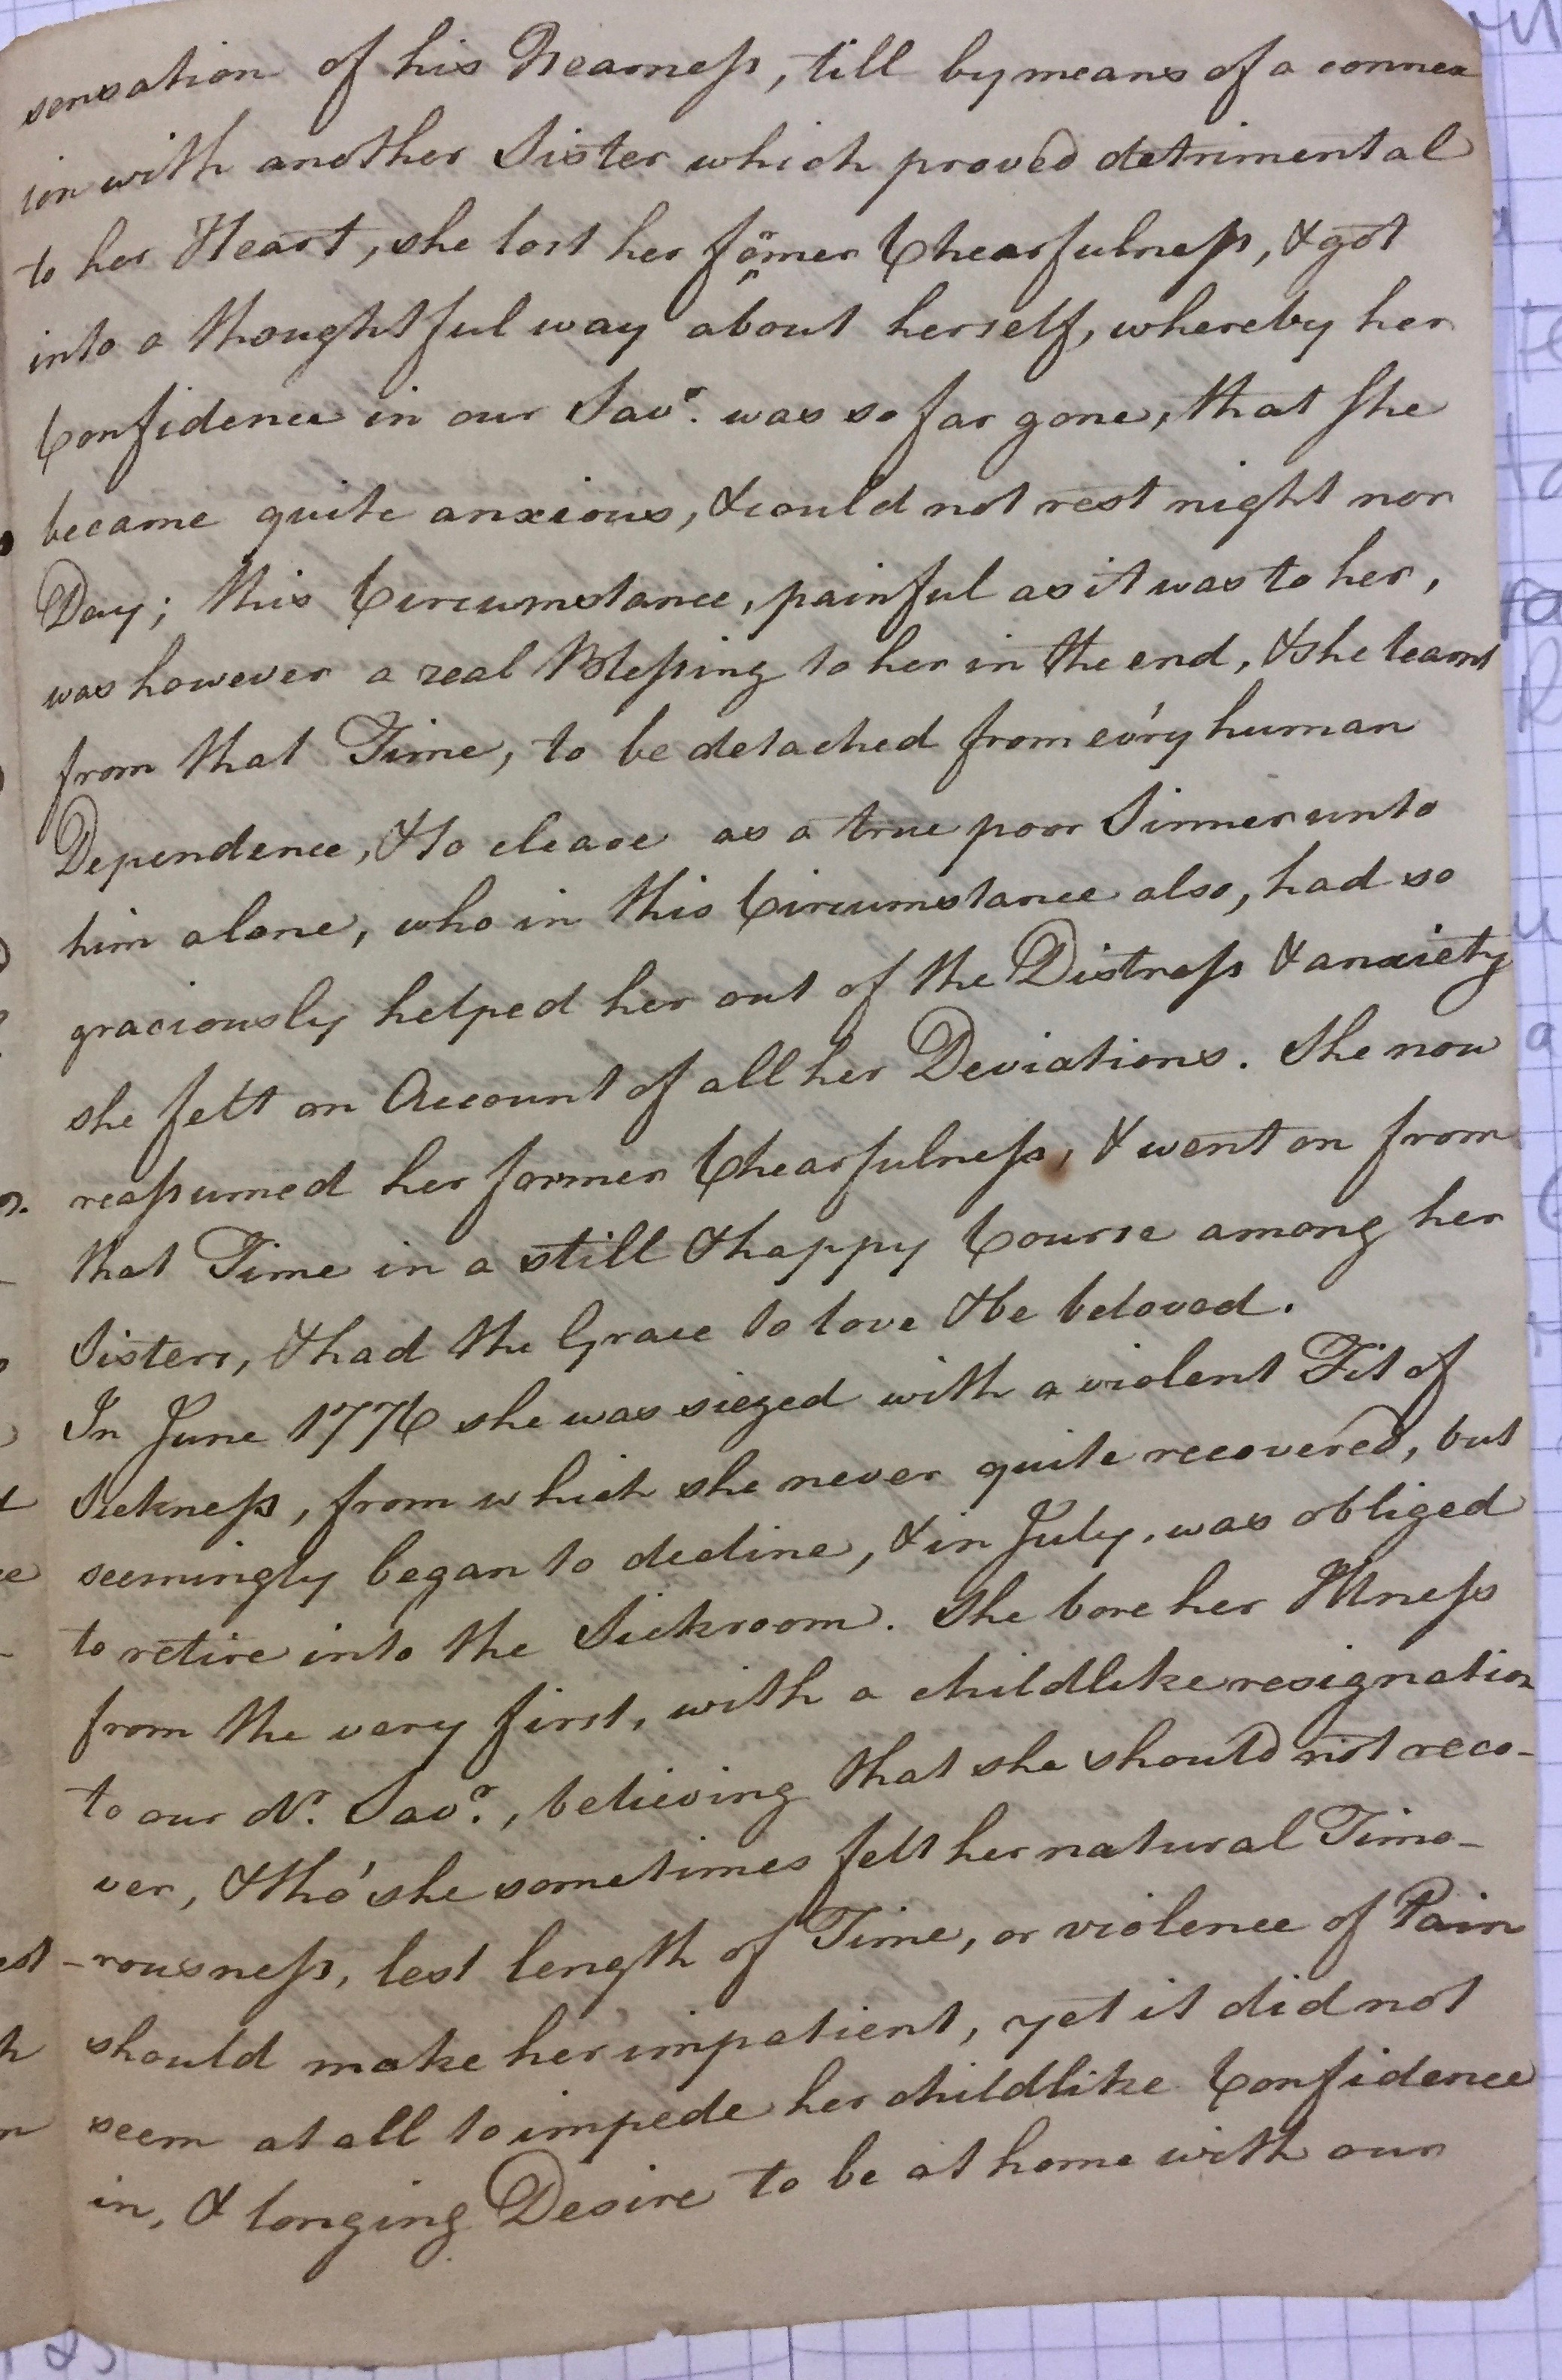 sensation of his Nearness, till by means of a connex
ion with another Sister which proved detrimental
to her Heart, she lost her former Chearfulness, & got
into a thoughtful way about herself, whereby her
Confidence in our Savr. was so far gone, that she
became quite anxious, & could not rest night nor
Day; this Circumstance, painful as it was to her,
was however a real Blessing to her in the end, & she learnt
from that Time, to be detached from ev'ry human
Dependence, & to cleave as a true poor Sinner unto
him alone, who in this Circumstance also, had so
graciously helped her out of the Distress & anxiety
she felt on Account of all her Deviations. She now
reassumed her former Chearfulness, & went on from
that Time in a still & happy Course among her
Sisters, & had the Grace to love & be beloved.
In June 1776 she was siezed with a violent Fit of
Sickness, from which she never quite recovered, but
seemingly began to decline, & in July, was obliged
to retire into the Sickroom. She bore her Illness
from the very first, with a childlike resignation
to our dr. Savr., believing that she should not reco-
ver, & tho' she sometimes felt her natural Timo-
-rousness, lest length of Time, or violence of Pain
should make her impatient, yet it did not
seem at all to impede her childlike Confidence
in, & longing Desire to be at home with our